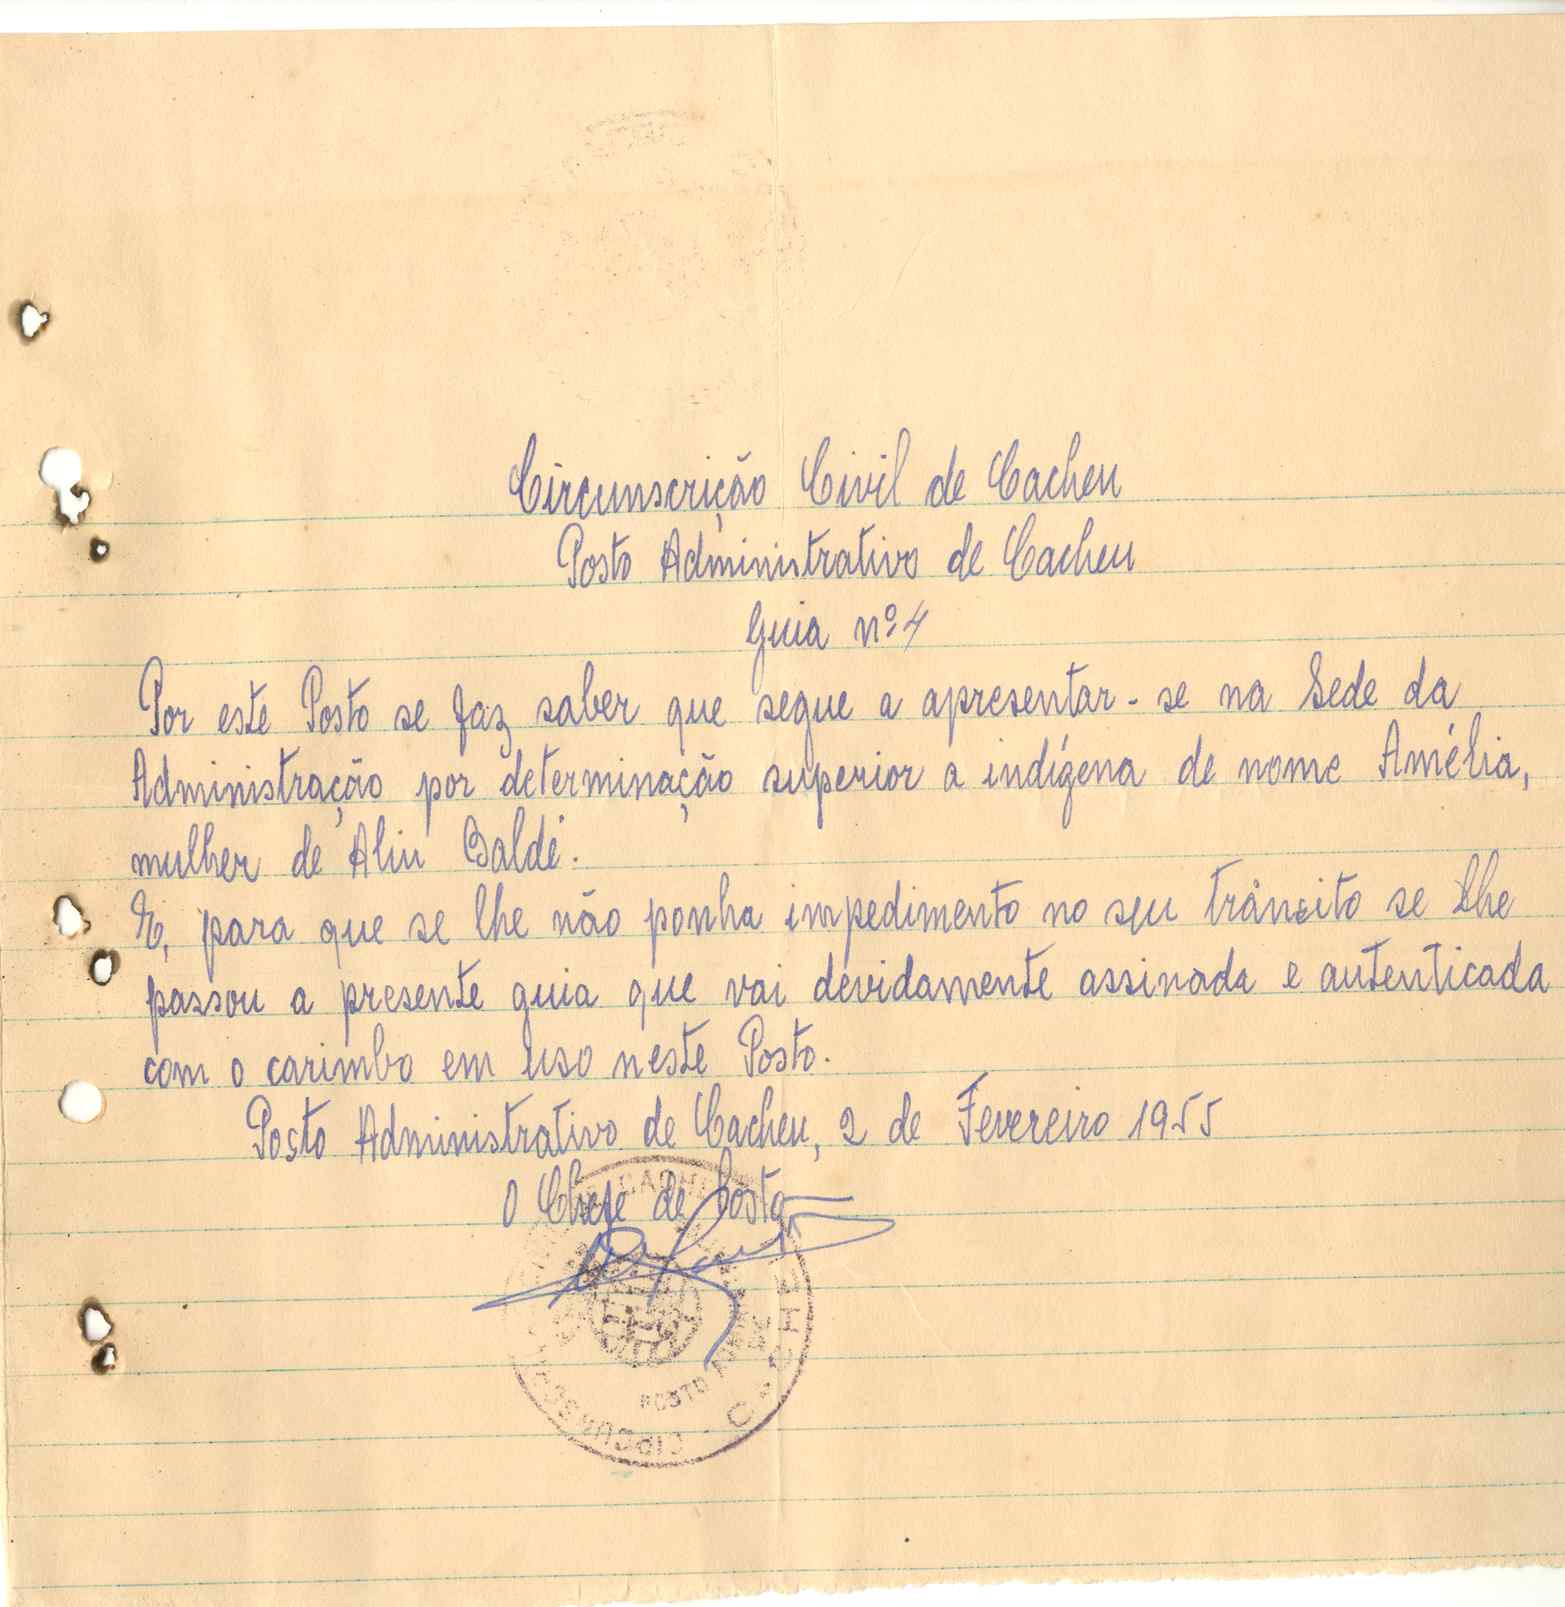 Circunscrição Civil de Cacheu
Posto Administrativo de Cacheu
Guia nº 4
Por este Posto se faz saber que segue a apresentar-se na Sede da
Administração por determinação superior a indígena de nome Amélia,
mulher de Aliu Baldé.
E, para que se lhe não ponha impedimento no seu trânsito se lhe
passou a presente guia que vai devidamente assinada e autenticada
com o carimbo em uso neste Posto.
Posto Administrativo de Cacheu, 2 de Fevereiro 1955
O Chefe de Posto
POSTO